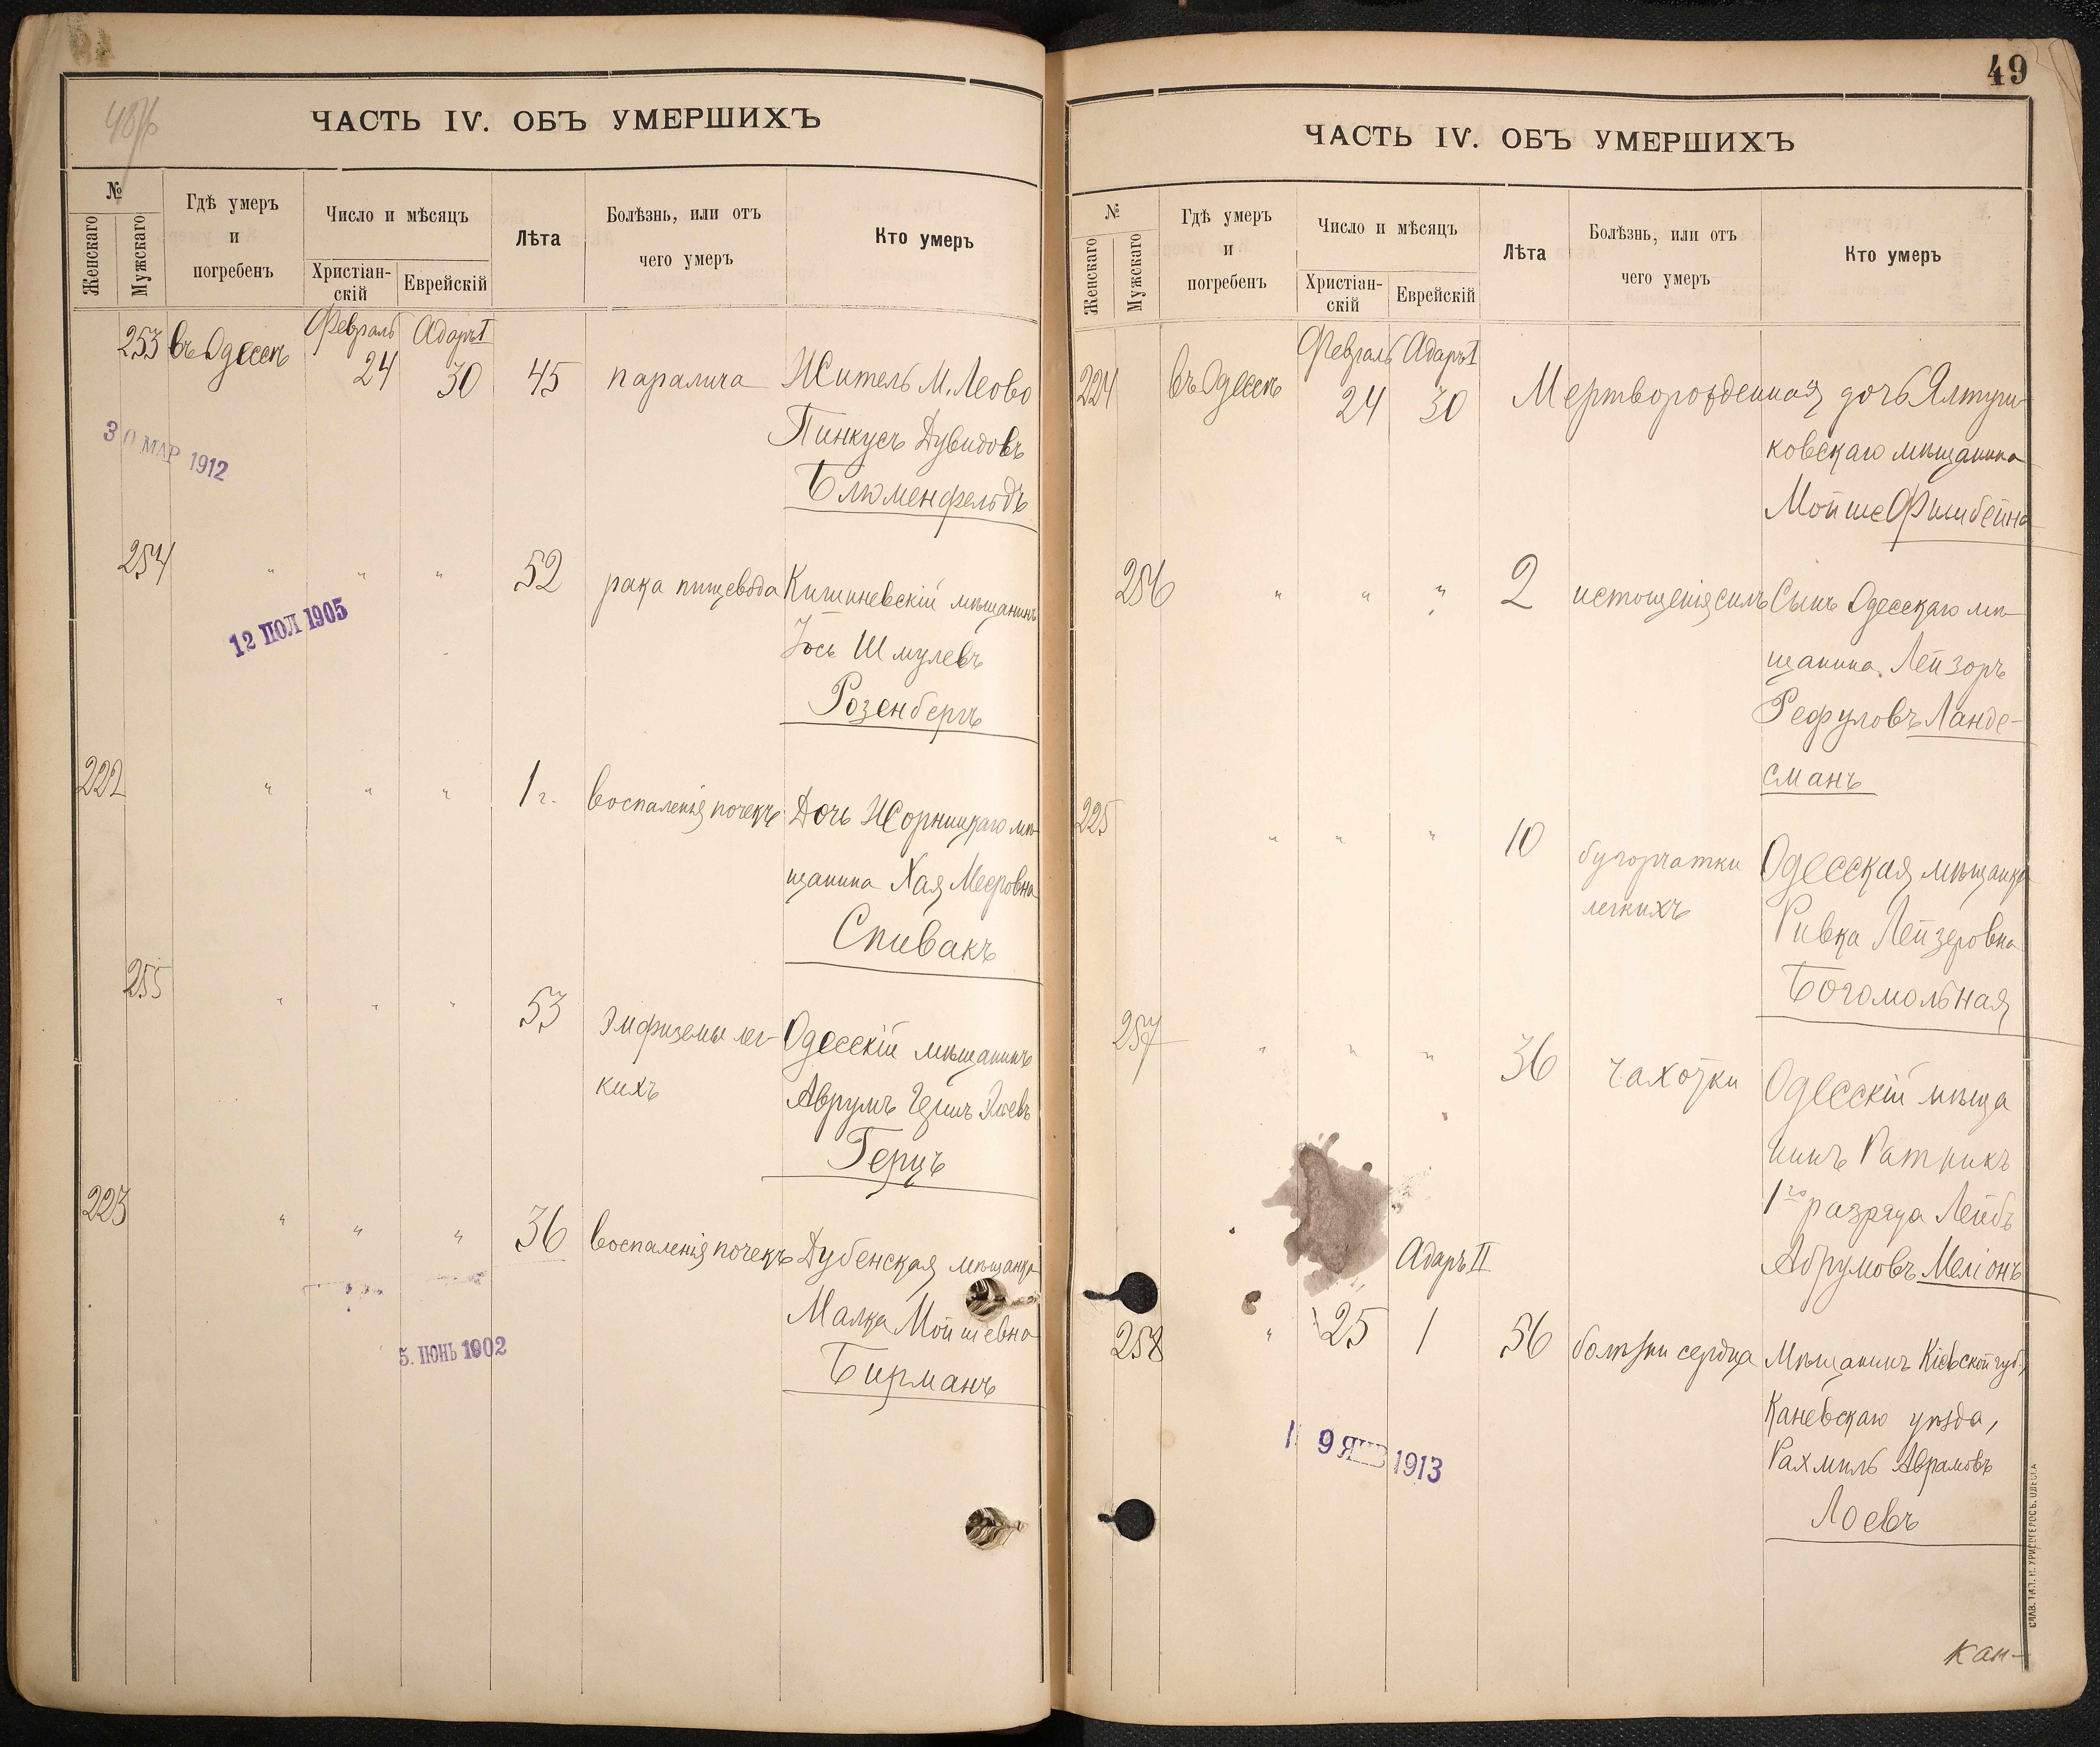 ЧАСТЬ IV. ОБЪ УМЕРШИХЪ
№
Женскаго
Мужскаго
Гдѣ умеръ
и
погребенъ
Число и мѣсяцъ
Христіан-
скій
Еврейскій
Лѣта
Болѣзнь, или отъ
чего умеръ
Кто умеръ
Февраль Адаръ I
253 въ Одессѣ 24 30 45 паралича Житель М. Леово
Пинкусъ Дувидовъ
Блюменфельдъ
30 МАР 1912
254 " " " 52 рака пищевода Кишиневскій мѣщанинъ
Іось Шмулевъ
Розенбергъ
12 ІЮЛ 1905
222 " " " 1 г. воспаленія почекъ Дочь Жорнищкаго мѣ-
щанина Хая Мееровна
Спивакъ
255 " " " 53 эмфиземы лег- Одесскій мѣщанинъ
кихъ Аврумъ
Герцъ
223 " " " 36 воспаленія почекъ Дубенская мѣщанка
Малка Мойшевна
Бирманъ
5. ІЮНЬ 1902
49
ЧАСТЬ IV. ОБЪ УМЕРШИХЪ
№
Женскаго
Мужскаго
Гдѣ умеръ
и
погребенъ
Число и мѣсяцъ
Христіан-
скій
Еврейскій
Лѣта
Болѣзнь, или отъ
чего умеръ
Кто умеръ
Февраль Адаръ I
224 въ Одессѣ 24 30 Мертворожденная дочь Ялтуш-
ковскаго мѣщанина
Мойше
256 " " " 2 истощенія силъ Сынъ Одесскаго мѣ-
щанина Лейзоръ
Рефуловъ Ланде-
сманъ
225 " " " 10 бугорчатки Одесская мѣщанка
легкихъ Ривка Лейзеровна
Богомольная
257 " " " 36 чахотки Одесскій мѣща
нинъ Ратникъ
1го разряда Лейбъ
Абрумовъ Меліонъ
Адаръ II
258 " 25 1 56 болѣзни сердца Мѣщанинъ Кіевской губ.,
Каневскаго уѣзда,
Рахмиль Аврамовъ
Лоевъ
9 ЯНВ 1913
Кан-